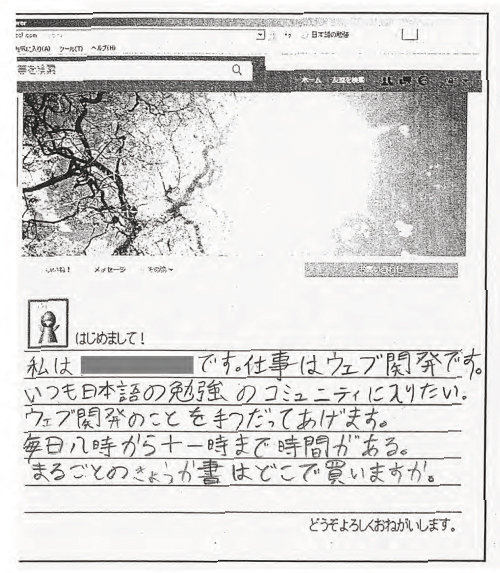 日本語の勉強
ツール(T) ヘルプ(H)
を検索
ホーム 友達を検索
いいね！ メッセージ その他
はじめまして！
私は です。仕事はウェブ開発です。
いつも日本語の勉強のコミュニティに入りたい。
ウェブ開発のことを手つだってあげます。
毎日八時から十一時まで時間がある。
まるごとのきょうか書はどこで買いますか。
どうぞよろしくおねがいします。